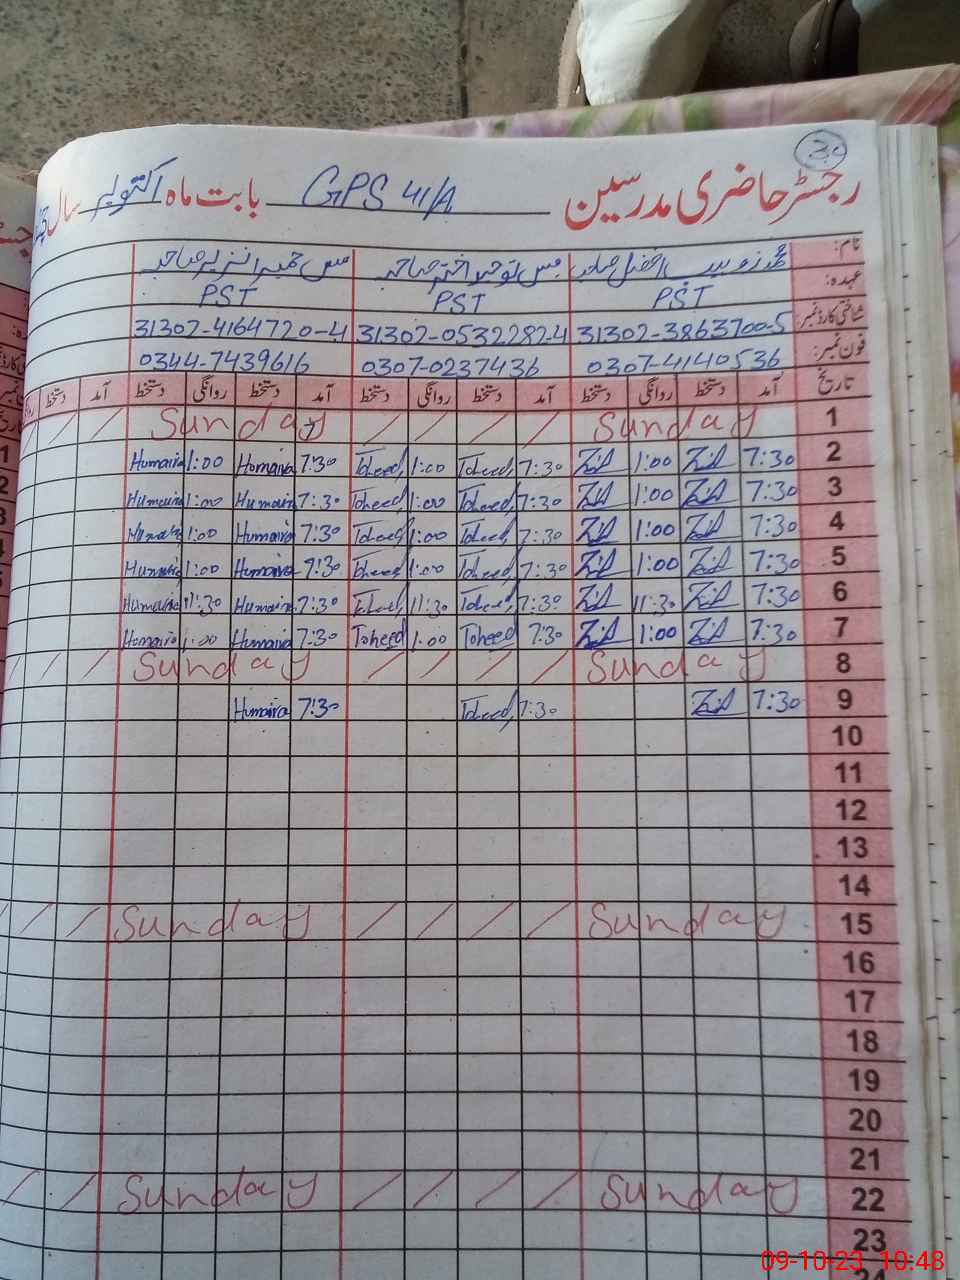 30
رجسٹر حاضری مدرسین GPS 41/A بابت ماہ اکتوبر سال
نام: محمد زوہیب افضل صاحب مس توحید اختر صاحبہ مس حمیرا نذیر صاحبہ
عہدہ: PST PST PST
شناختی کارڈ نمبر: 31302-3863700-5 31302-0532282-4 31302-4164720-4
فون نمبر: 0307-4140536 0307-0237436 0344-7439616
تاریخ آمد دستخط روانگی دستخط آمد دستخط روانگی دستخط آمد دستخط روانگی دستخط آمد دستخط
1 Sunday Sunday
2 7:30 1:00 7:30 Toheed 1:00 Toheed 7:30 Humaira 1:00 Humaira
3 7:30 1:00 7:30 Toheed 1:00 Toheed 7:30 Humaira 1:00 Humaira
4 7:30 1:00 7:30 Toheed 1:00 Toheed 7:30 Humaira 1:00 Humaira
5 7:30 1:00 7:30 Toheed 1:00 Toheed 7:30 Humaira 1:00 Humaira
6 7:30 11:30 7:30 Toheed 11:30 Toheed 7:30 Humaira 11:30 Humaira
7 7:30 1:00 7:30 Toheed 1:00 Toheed 7:30 Humaira 1:00 Humaira
8 Sunday Sunday
9 7:30 7:30 Toheed 7:30 Humaira
10
11
12
13
14
15 Sunday Sunday
16
17
18
19
20
21
22 Sunday Sunday
23
24
09-10-23 10:48